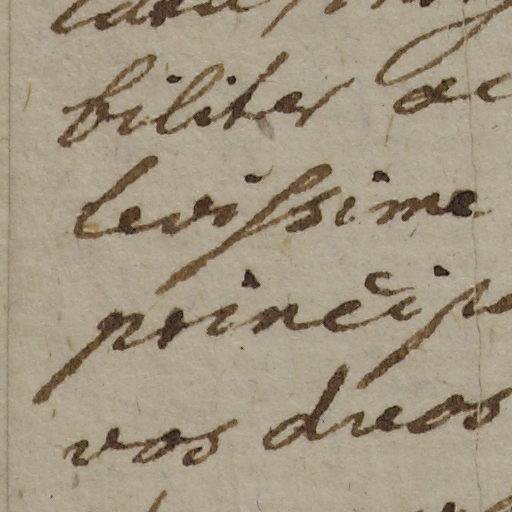 biliter ac
levissime
princip
vos duos